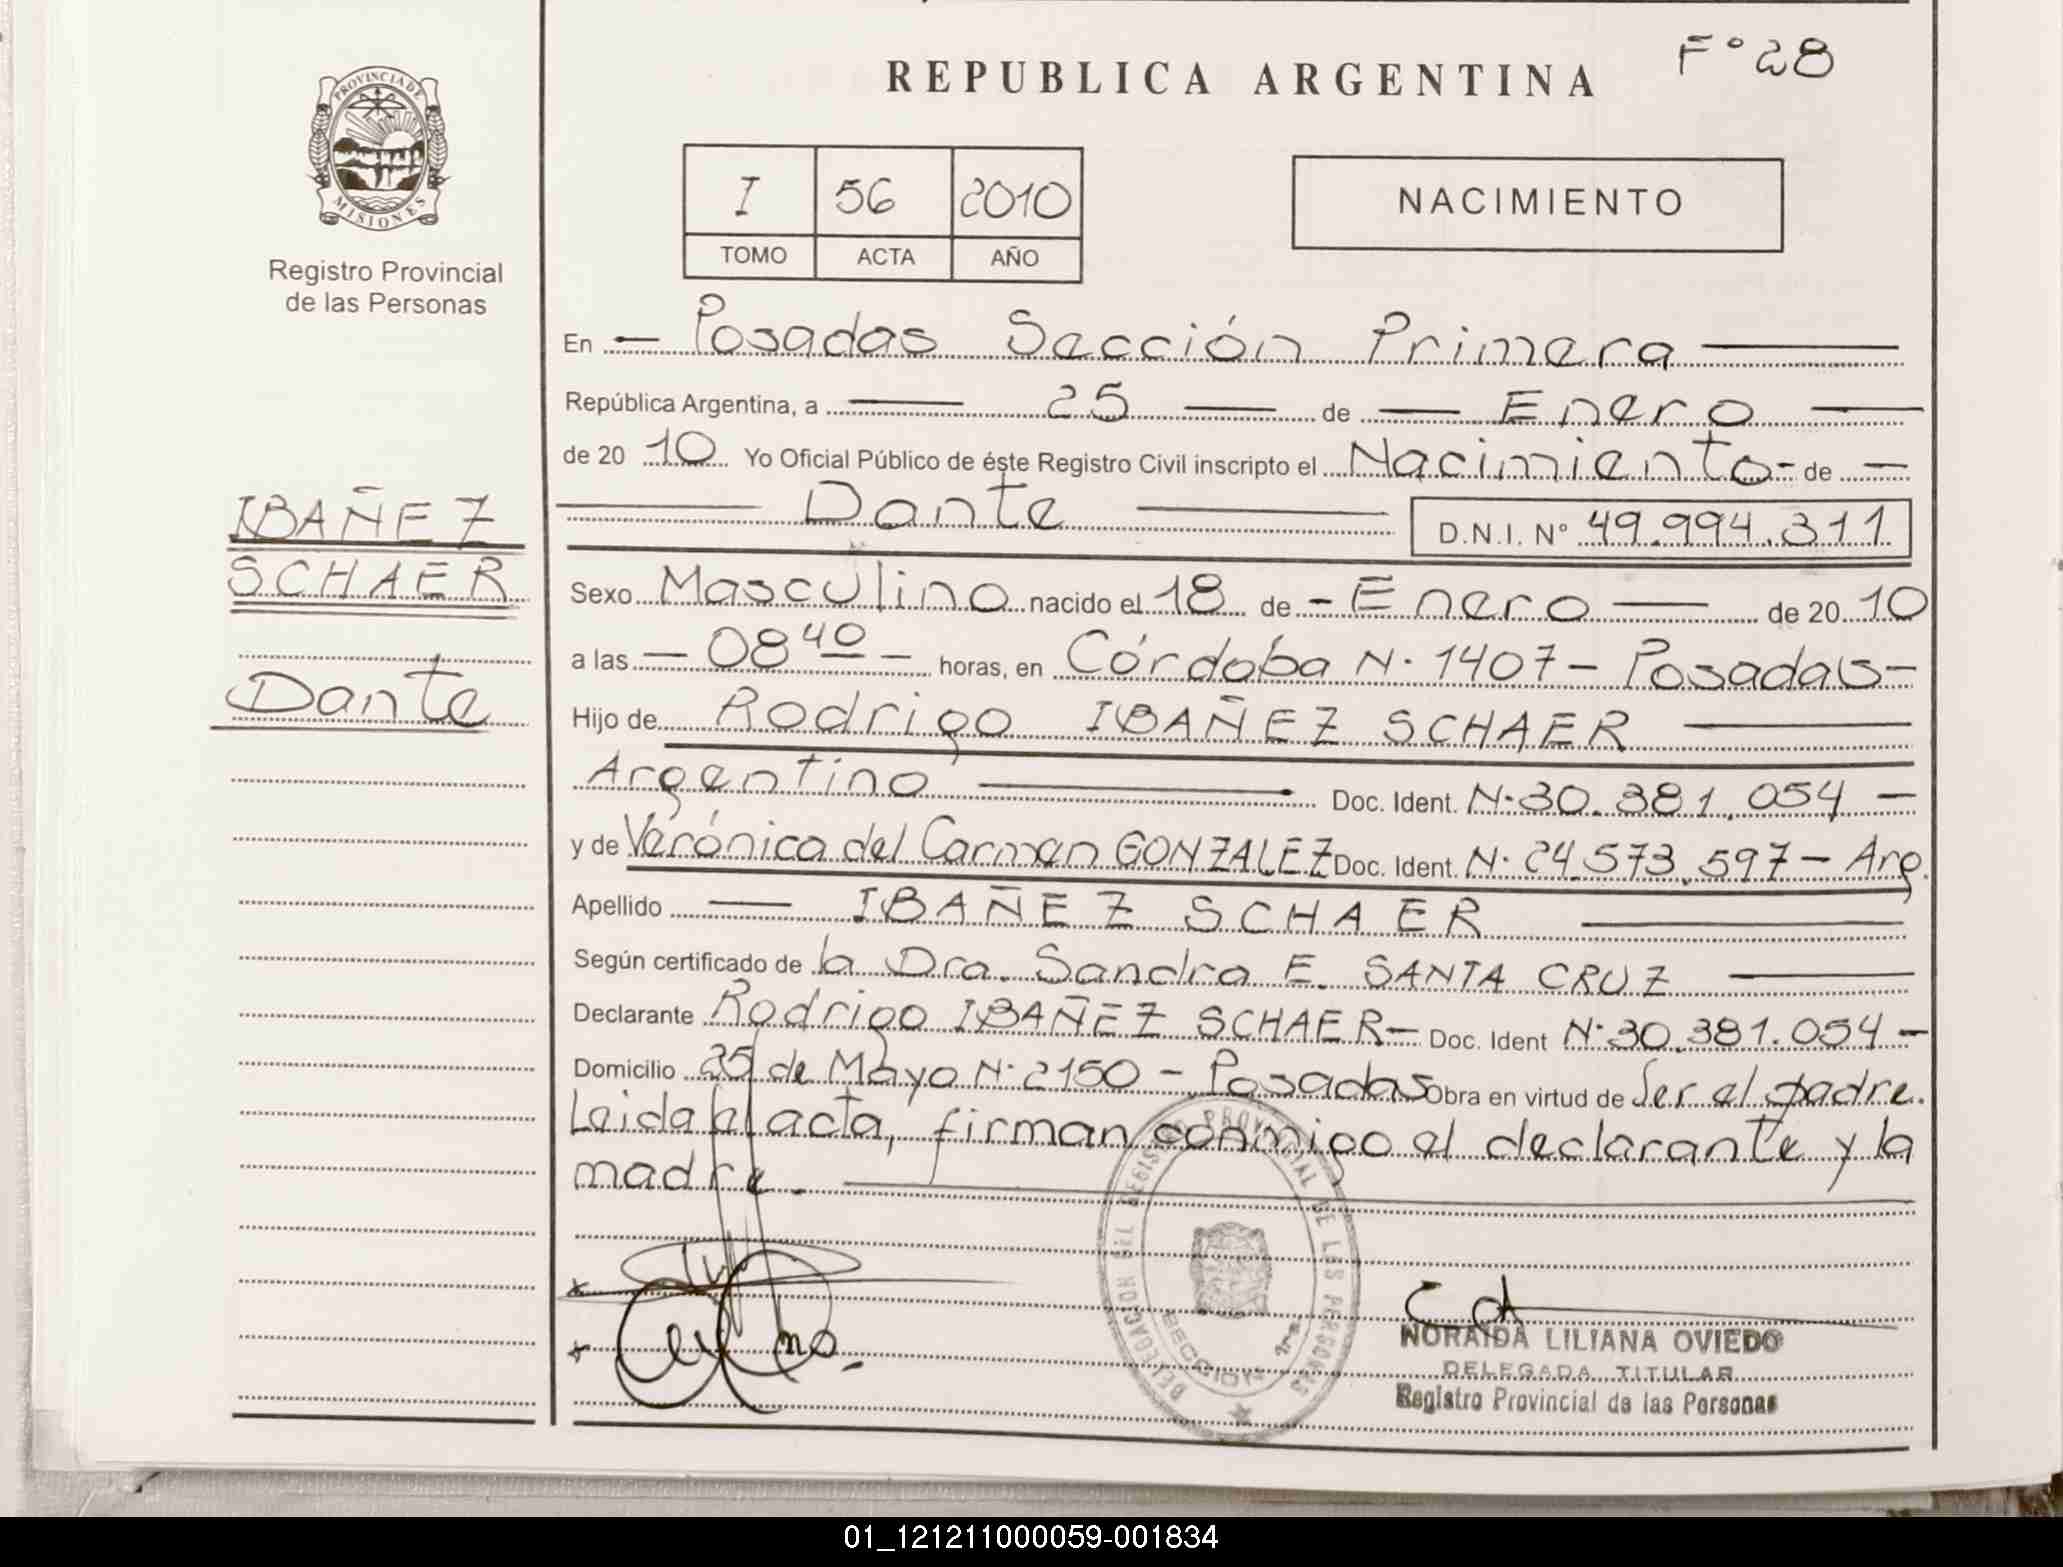 F° 28
REPUBLICA ARGENTINA
PROVINCIA DE
MISIONES
Registro Provincial
de las Personas
I 56 2010
TOMO ACTA AÑO
NACIMIENTO
En — Posadas Sección Primera —
República Argentina, a — 25 — de — Enero —
de 20 10 Yo Oficial Público de éste Registro Civil inscripto el Nacimiento - de —
— Dante — D.N.I. N° 49.994.311
IBAÑEZ
SCHAER
Dante
Sexo Masculino nacido el 18 de - Enero — de 20 10
a las — 08 40 — horas, en Córdoba N. 1407 - Posadas -
Hijo de Rodrigo IBAÑEZ SCHAER —
Argentino — Doc. Ident. N. 30.381.054 —
y de Verónica del Carmen GONZALEZ Doc. Ident. N. 24.573.597 - Arg.
Apellido — IBAÑEZ SCHAER —
Según certificado de la Dra. Sandra E. SANTA CRUZ —
Declarante Rodrigo IBAÑEZ SCHAER - Doc. Ident N. 30.381.054 —
Domicilio 25 de Mayo N. 2150 - Posadas Obra en virtud de Ser el padre.
Leida el acta, firman conmigo el declarante y la
madre. —
DELEGACION DEL REGISTRO PROVINCIAL DE LAS PERSONAS
SECCION 1ra.
NORAIDA LILIANA OVIEDO
DELEGADA TITULAR
Registro Provincial de las Personas
01_121211000059-001834